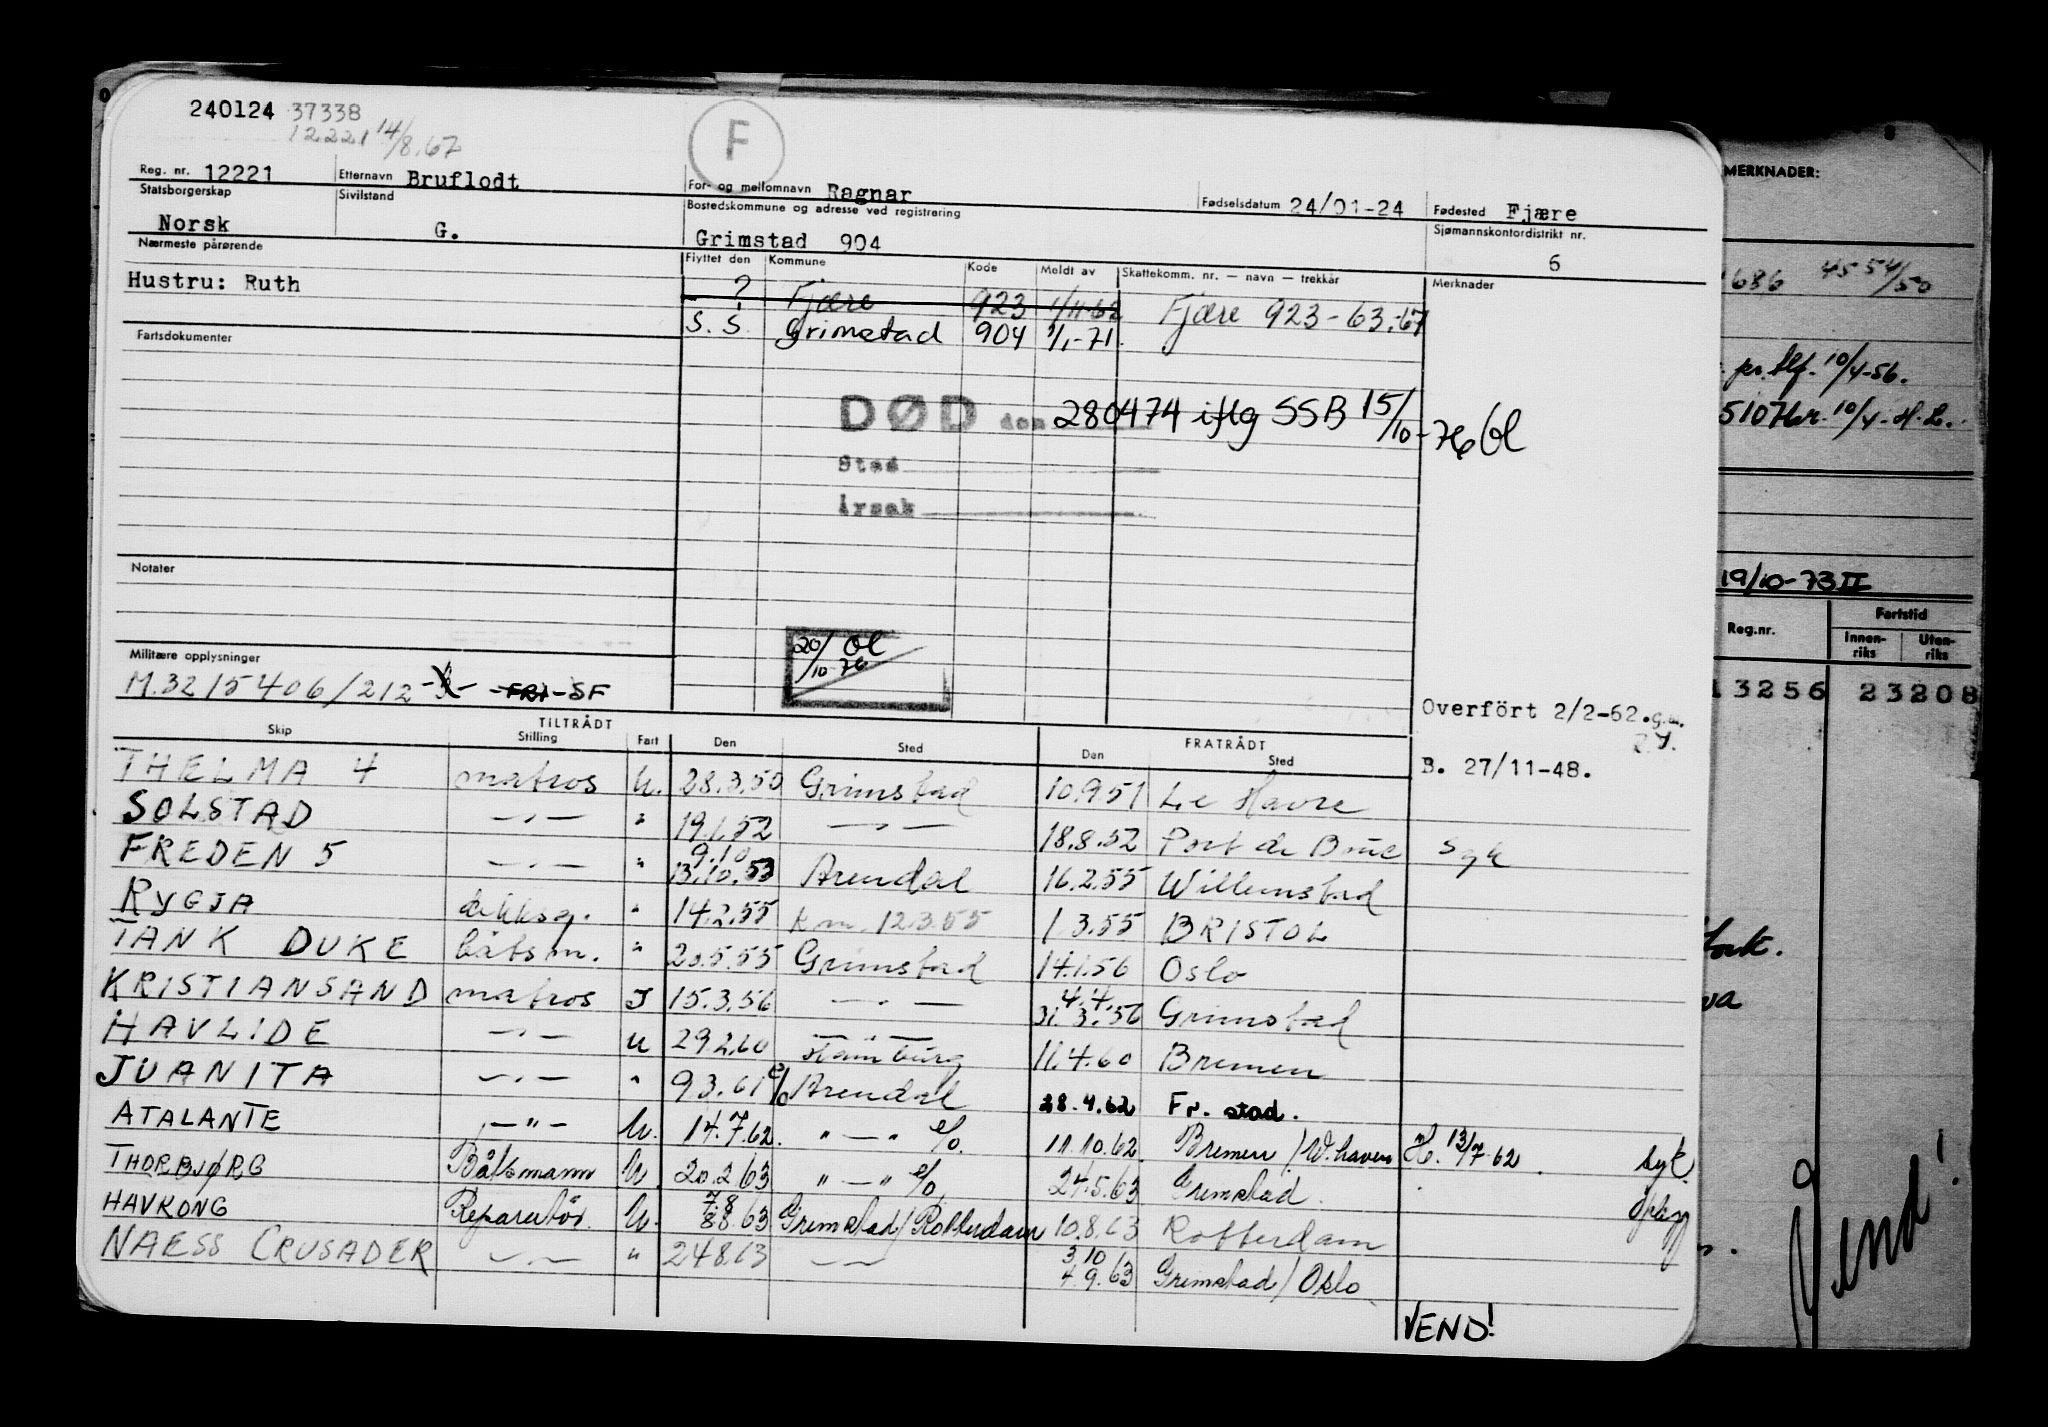 240124 37338
12221 14/8.67
F
Reg. nr. 12221 Etternavn Bruflodt For- og mellomnavn Ragnar Fødselsdatum 24/01-24 Fødested Fjære
Statsborgerskap Sivilstand Bostedskommune og adresse ved registrering Sjømannskontordistrikt nr.
Norsk G. Grimstad 904 6
Nærmeste pårørende Flyttet den Kommune Kode Meldt av Skattekomm. nr. — navn — trekkår Merknader
Hustru: Ruth ? Fjære 923 1/11-62 Fjære 923-63.-67
S. S. Grimstad 904 1/1-71.
Fartsdokumenter
DØD den 280474 iflg SSB 15/10-76 Ol
Sted
Årsak
Notater
20/10-76 Ol
Militære opplysninger
M.3215406/212 - - FRI - SF
Overfört 2/2-62.
B. 27/11-48.
TILTRÅDT FRATRÅDT
Skip Stilling Fart Den Sted Den Sted
THELMA 4 matros U. 28.3.50 Grimstad 10.9.51 Le Havre
SOLSTAD —„— " 19.1.52 —„— 18.8.52 Port de Bouc Syk
FREDEN 5 —„— " 9.10 13.10.53 Arendal 16.2.55 Willemstad
RYGJA dekksg. " 14.2.55 k.m. 12.3.55 1 3.55 BRISTOL
TANK DUKE båtsm. " 20.5.55 Grimstad 14.1.56 Oslo
KRISTIANSAND matros J 15.3.56 —„— 4.4. 31.3.56 Grimstad
HAVLIDE —„— U 29.2.60 Hamburg 11.4.60 Bremen
JUANITA —„— " 9 3.61 e/o Arendal 28.4.62 Fr. stad.
ATALANTE —„— U. 14.7.62. "—" e/o. 11.10.62 Bremen/W.haven H. 13/7-62. syk
THORBJØRG Båtsmann U. 20.2.63 "—" e/o 24.5.63 Grimstad.
HAVKONG Reparatör U. 7.8 8.8.63 Grimstad/Rotterdam 10.8.63 Rotterdam
NAESS CRUSADER —„— " 24.8.63 —„— 3.10 4.9.63 Grimstad/Oslo
VEND!
MERKNADER:
686 4554/50
pr. 10/4-56.
5107 kr. 10/4-H.L.
19/10-73 II
Reg.nr. Fartstid
Innenriks Utenriks
13256 23208
Vend!